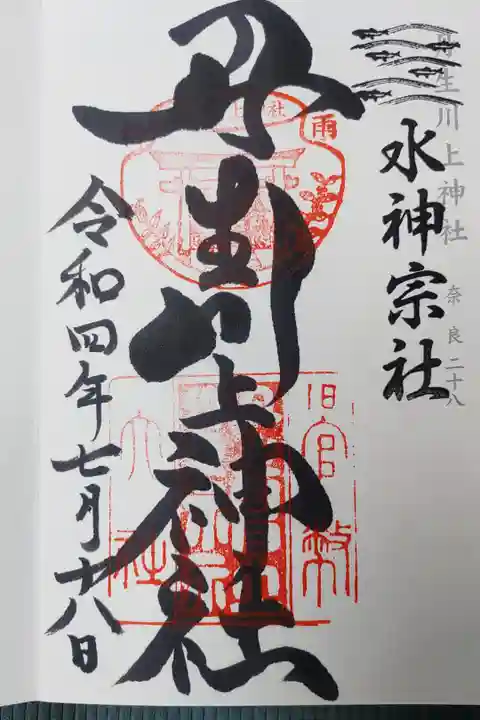 丹生川上神社
奈良二十八
水神宗社
丹生川上神社
雨
社
旧官幣
大社
令和四年七月十八日